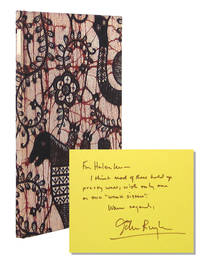 For Helen —
I think most of these hold up
pretty well, with only one
or two "weak sisters".
Warm regards,
John